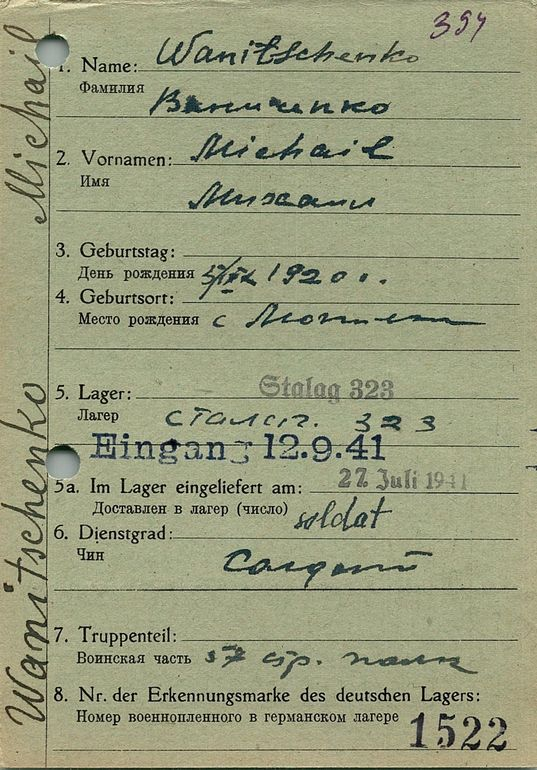 394
1. Name: Wanitschenko
Фамилия
Ваниченко
2. Vornamen: Michail
Имя
Михаил
3. Geburtstag:
День рождения 1920 г.
4. Geburtsort:
Место рождения с
5. Lager: Stalag 323
Лагер сталаг. 323
Eingang 12.9.41
5a. Im Lager eingeliefert am: 27. Juli 1941
Доставлен в лагер (число)
6. Dienstgrad: soldat
Чин
Солдат
7. Truppenteil:
Воинская часть 57 стр. полк
8. Nr. der Erkennungsmarke des deutschen Lagers:
Номер военнопленного в германском лагере 1522
Wanitschenko Michail